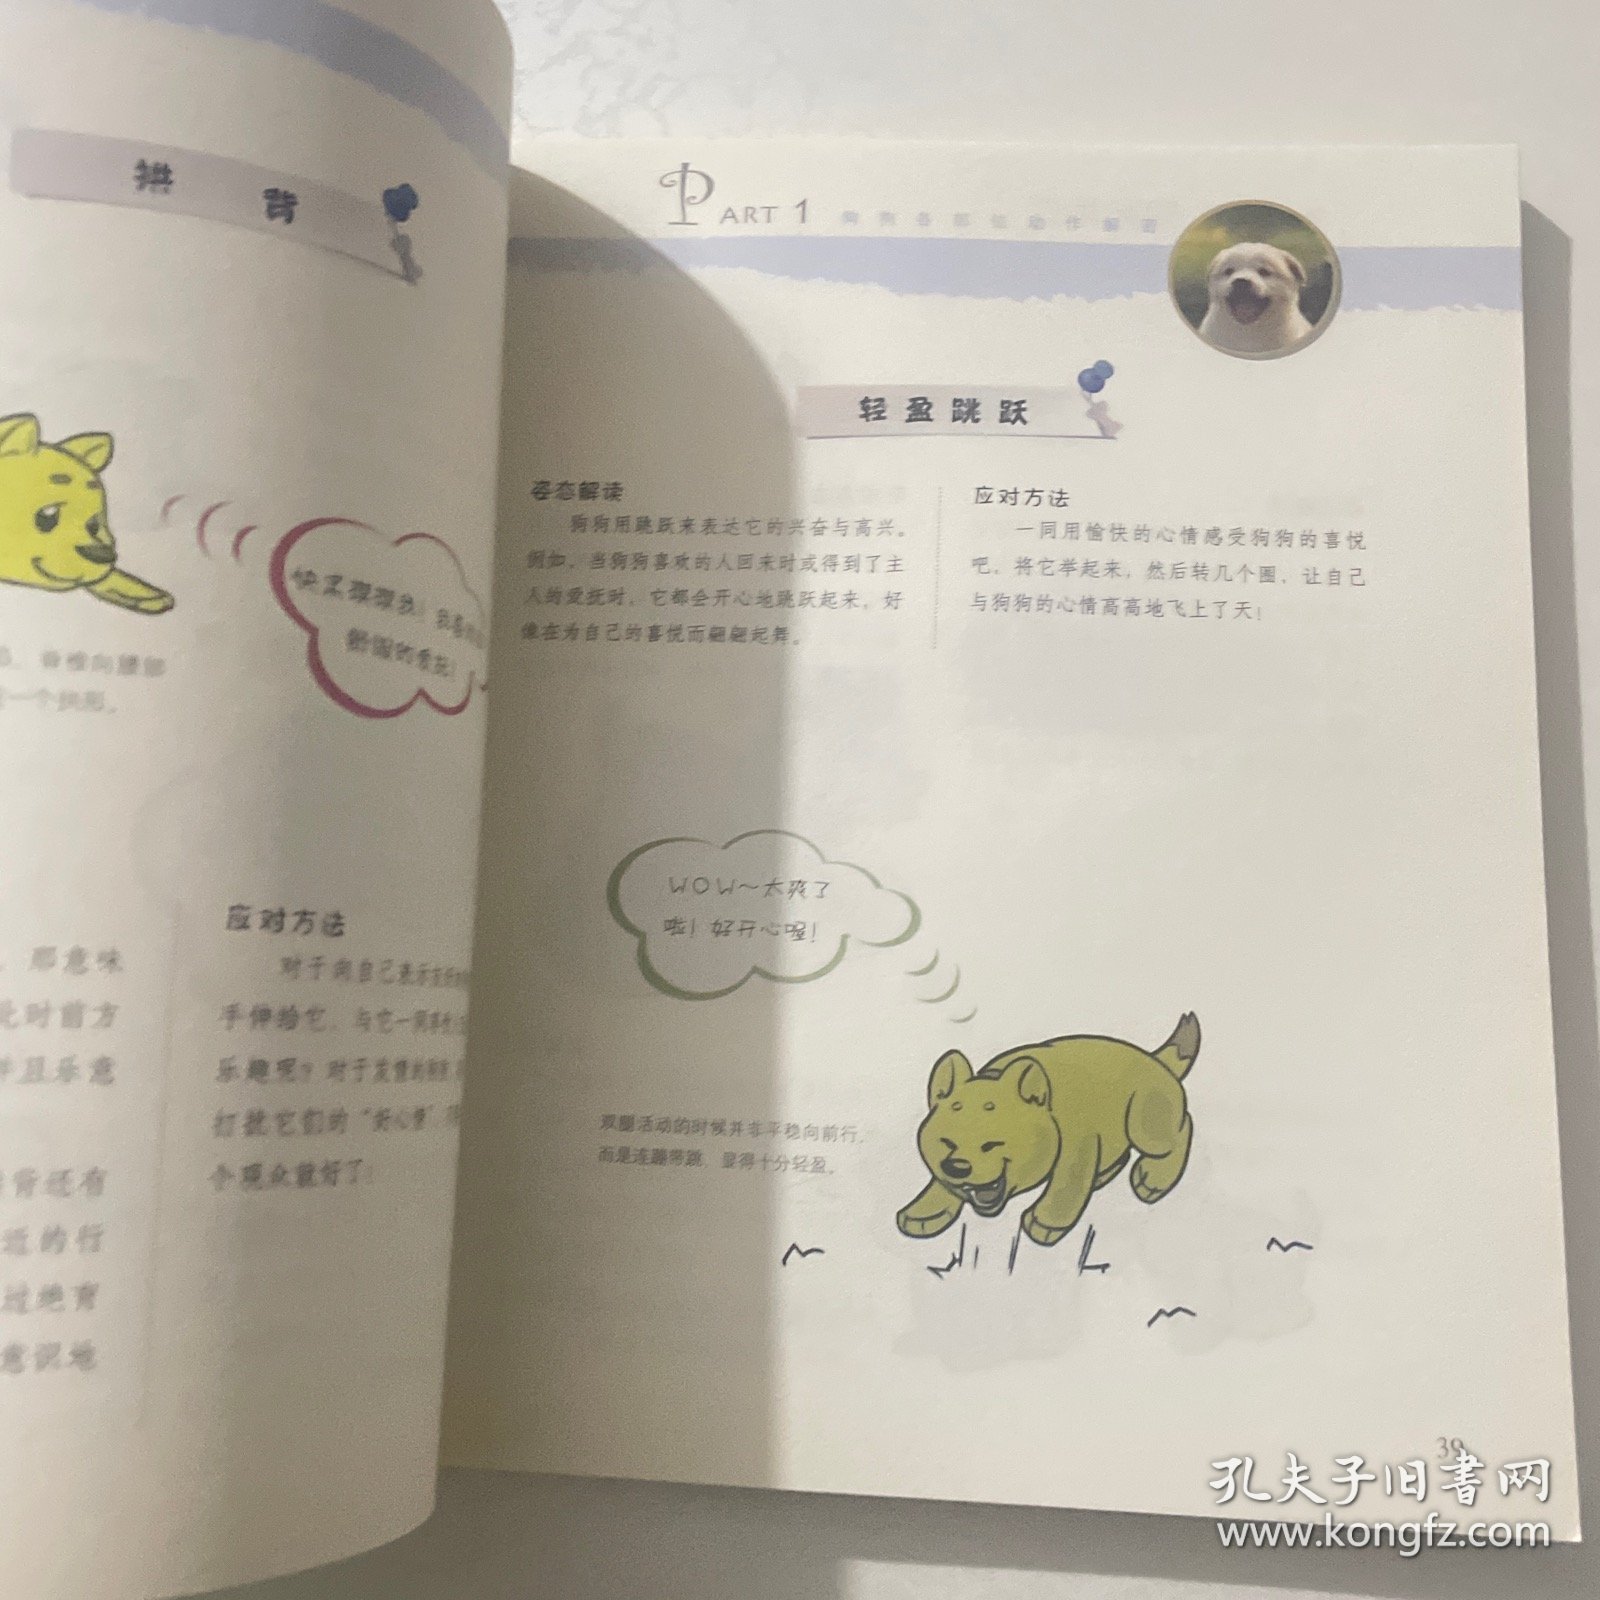 拱背
快来摸摸我！我喜
舒服的爱抚！
脊椎向腰部
一个拱形。
那意味
此时前方
并且乐意
背还有
近的行
过绝育
意识地
应对方法
对于向自己表示友好
手伸给它，与它一同
乐趣呢？对于发情的
打扰它们的“好心情”
个观众就好了！
PART 1 狗狗各部位动作解密
轻盈跳跃
姿态解读
狗狗用跳跃来表达它的兴奋与高兴。
例如，当狗狗喜欢的人回来时或得到了主
人的爱抚时，它都会开心地跳跃起来，好
像在为自己的喜悦而翩翩起舞。
应对方法
一同用愉快的心情感受狗狗的喜悦
吧，将它举起来，然后转几个圈，让自己
与狗狗的心情高高地飞上了天！
WOW～太爽了
啦！好开心喔！
双腿活动的时候并非平稳向前行，
而是连蹦带跳，显得十分轻盈。
39
孔夫子旧书网
www.kongfz.com